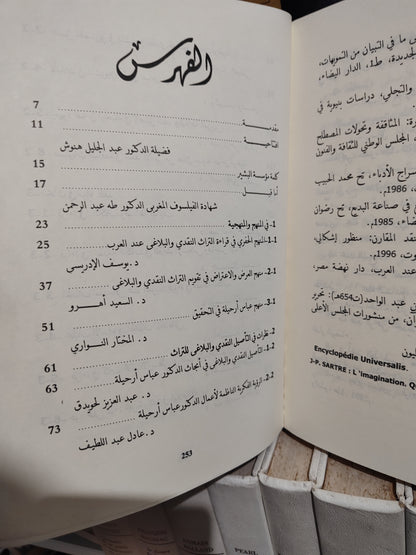 الفهرس
مقدمة 7
افتتاحية 11
فضيلة الدكتور عبد الجليل هنوش
كلمة مؤسسة البشير 15
أما قبل 17
شهادة الفيلسوف المغربي الدكتور طه عبد الرحمن
1- في المنهج والمنهجية 23
1-1- المنهج الحفري في قراءة التراث النقدي والبلاغي عند العرب 25
د. يوسف الإدريسي
2-1- منهج العرض والاعتراض في تقويم التراث النقدي والبلاغي 37
د. السعيد أهرو
3-1- منهج عباس أرحيلة في التحقيق 51
د. المختار النواري
2- نظرات في التأصيل النقدي والبلاغي للتراث 61
1-2- التأصيل النقدي والبلاغي في أبحاث الدكتور عباس أرحيلة 63
د. عبد العزيز لحويدق
2-2- الرؤية الفكرية الناظمة لأعمال الدكتور عباس أرحيلة 73
د. عادل عبد اللطيف
253
ما في التبيان من التمويهات،
الجديدة، ط1، الدار البيضاء،
والتجلي، دراسات بنيوية في
المثاقفة وتحولات المصطلح
المجلس الوطني للثقافة والفنون
سراج الأدباء، تح محمد الحبيب
1986م.
في صناعة البديع، تح رضوان
1985م.
المقارن: منظور إشكالي،
1996م.
عند العرب، دار نهضة مصر،
عبد الواحد (ت654هـ): تحرير
من منشورات المجلس الأعلى
Encyclopédie Universalis.
J-P. SARTRE : L'imagination.
PEARL